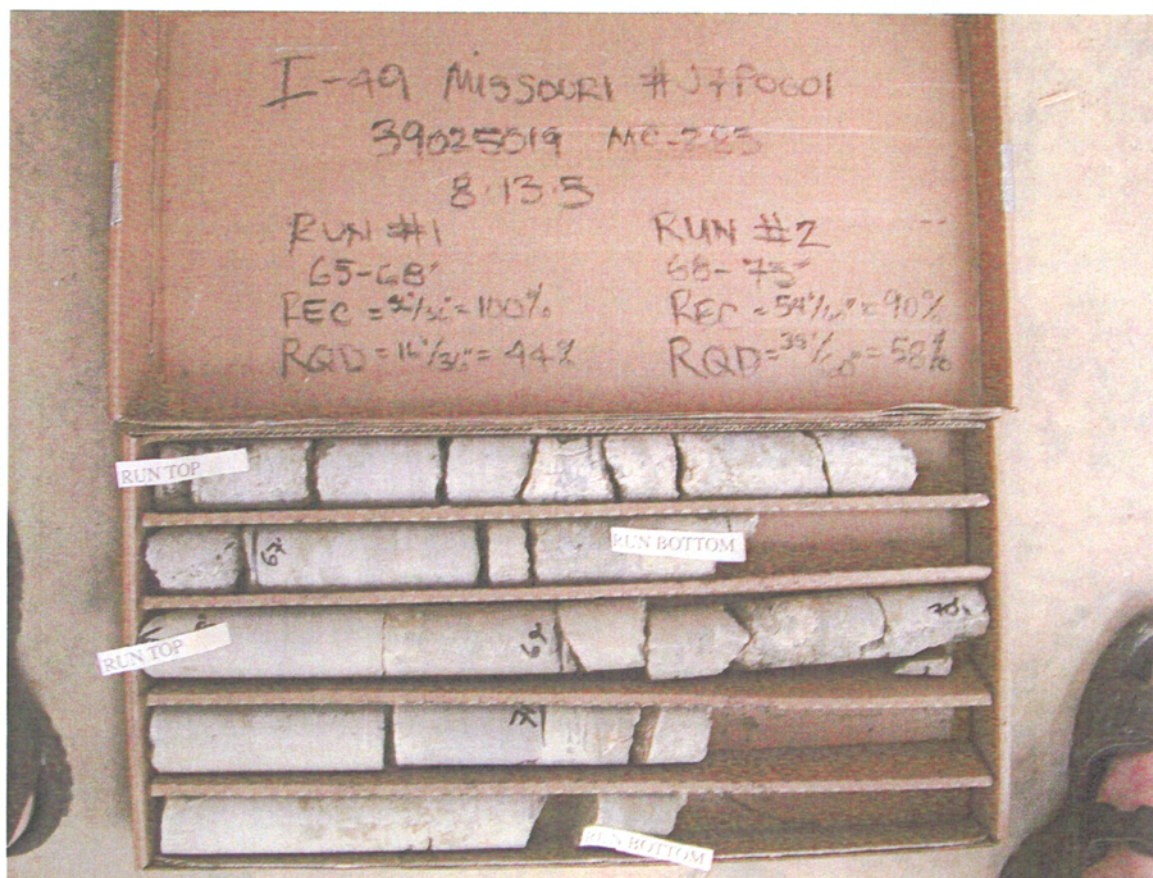 I-49 MISSOURI #J7P0601
39025019 MC-283
8-13-5
RUN #1
65-68'
REC = 36"/36" = 100%
RQD = 16"/36" = 44%
RUN #2
68-73'
REC = 54"/60" = 90%
RQD = 35"/60" = 58%
RUN TOP
67
RUN BOTTOM
RUN TOP
70
RUN BOTTOM